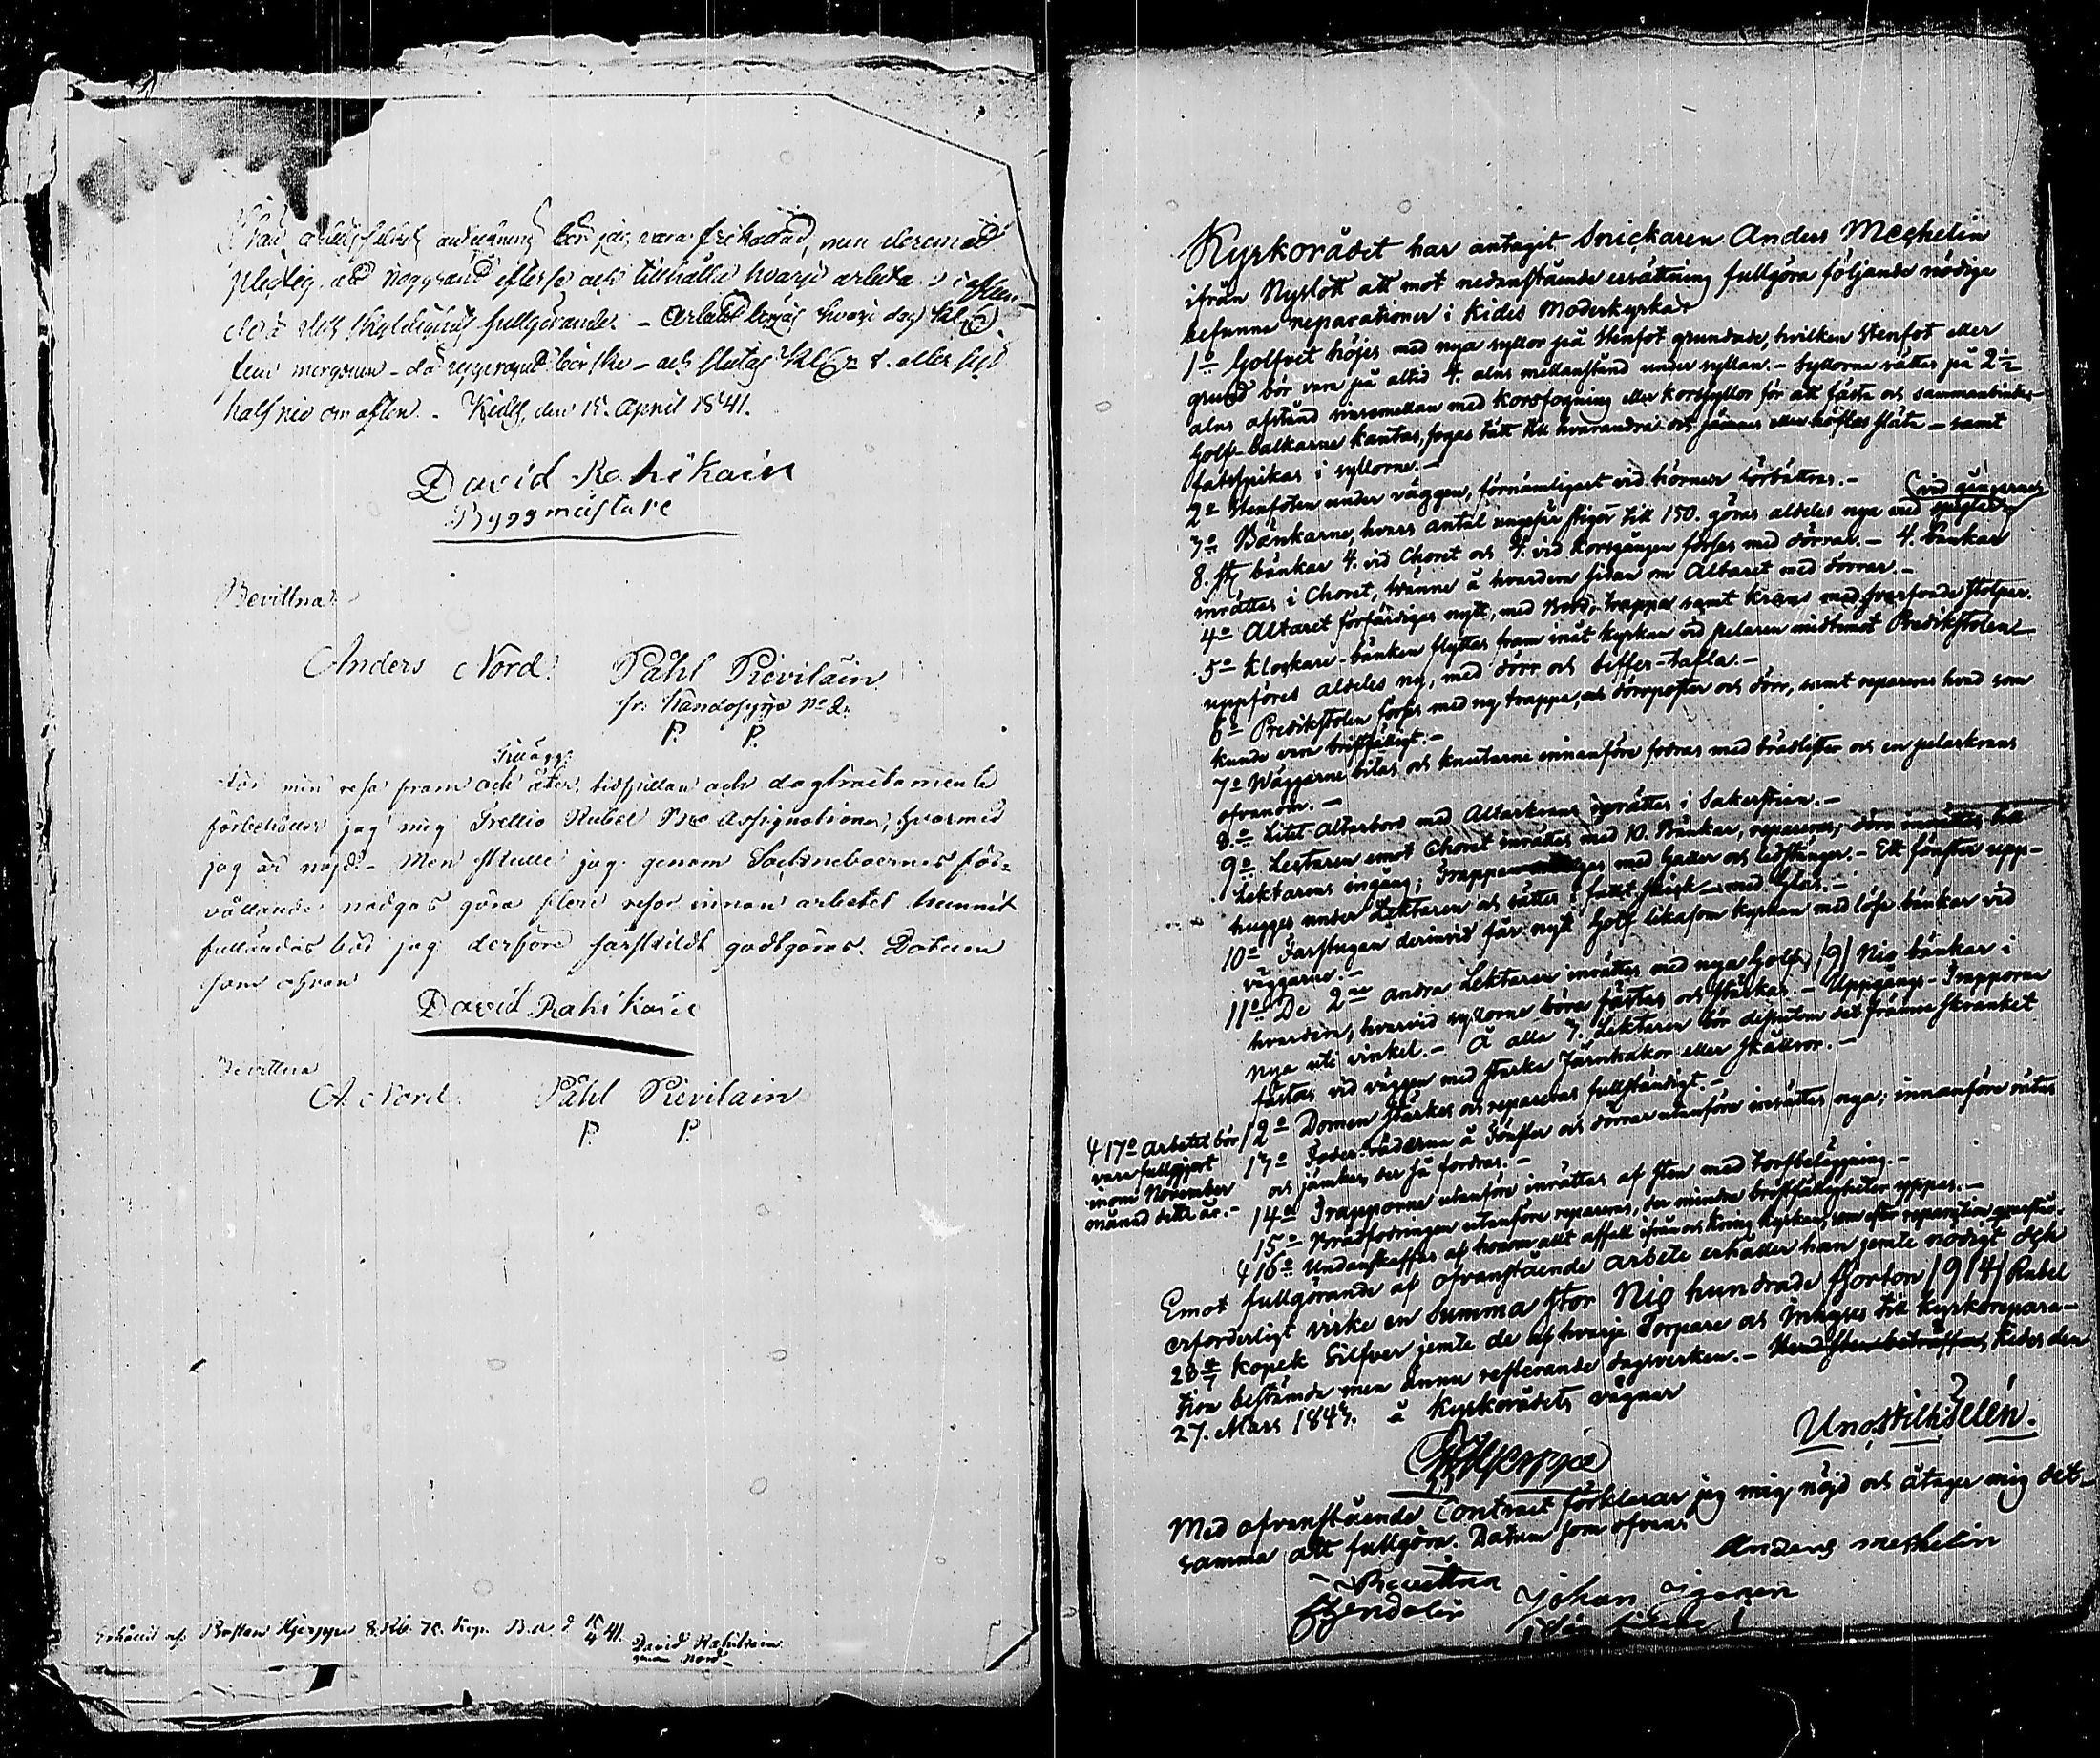 bör jag vara frikallad, men deremot
pligtig att noggrant efterse och tillhålla hvarje arbetare i
fullgörande. – Arbetet börjas hvarje dag Kl.
fem morgonen – då upprop bör ske – och slutas Kl. 8. eller
half nio om aften. – Kides, den 15. April 1841.
David Rahikain
Byggmästare
Bevittna
Anders Nord. Påhl Pievilain
fr. Kandosyrjä No 2.
P. P.
Tillägg:
För min resa fram och åter, tidspillan och dagtractamente
förbehåller jag mig Trettio Rubel Bco Assignationer, hvarmed
jag är nöjd. – Men skulle jag genom Sockneboernes för-
vållande nödgas göra flere resor innan arbetet hunnit
fulländas bör jag derföre särskildt godtgöras. Datum
som ofvan
David Rahikain
Bevittna
A. Nord. Påhl Pievilain
P. P.
Erhållit af Prosten Hjerppe 8. Rb. 70. Kop. B.A. d 15/4 41.
David Rahikain
genom Nord –
Kyrkorådet har antagit Snickaren Anders Mechelin
ifrån Nyslott att mot nedanstående ersättning fullgöra följande nödige
befunne reparationer i Kides Moderkyrka:
1o Golfvet höjes med nya syllor på Stenfot grundade, hvilken Stenfot eller
grund bör vara på altid 4. alns mellanstånd under syllan. – Syllorne sättas på 2 1/2
alns afstånd sinsemellan med Korsfogning eller Korssyllor för att fästa och sammanbinda –
Golf-balkarne kantas, fogas tätt till hvarandra och jämnes eller höflas släta – samt
fastspikas i syllorne. –
2o Stenfoten under väggen, förnämligast vid hörnen förbättras. –
3o Bänkarne, hvars antal ungefär stiger till 150. göras aldeles nya med speglar (vid gångarne)
8. st. bänkar 4. vid Choret och 4. vid Korsgången förses med dörrar. – 4. bänkar
inrättas i Choret, tvänne å hvardera sidan om Altaret med dörrar. –
4o Altaret förfärdigas nytt, med Bord, trappa samt Krans med svarfvade stolpar.
5o Klockare-bänken flyttas fram inåt kyrkan vid pelaren midtemot Predikstolen
uppföres aldeles ny, med dörr och siffer-tafla. –
6o Predikstolen förses med ny trappa, och dörrposter och dörr, samt repareras hvad som
kunde vara bristfälligt. –
7o Wäggarne bilas och knutarne innanföre fodras med brädlister och en pelarkrans
ofvanom. –
8o Litet Altarbord med Altarkrans inrättas i Sakerstian. –
9o Lectaren emot Choret inrättas med 10. Bänkar, repareras, dörr inrättas till
Lektarens ingång; Trappan med Galler och ledstänger. – Ett fönster upp-
hugges under Lektaren och sättes i fullt skick med Glas. –
10o Farstugan derinvid får nytt Golf likasom Kyrkan med löse bänkar vid
väggarne. –
11o De 2ne andra Lektaren inrättas med nya Golf, /9/ Nio bänkar i
hvardera, hvarvid syllorne böra fästas och stärkas. – Uppgångs-Trapporne
nya uti vinkel. – Å alla 3. Lektaren bör dessutom det främre skranket
fästas vid väggen med starka Järnhakar eller skållror. –
12o Domen stärkes och repareras fullständigt. –
13o Foder-bräderne å Fönster och dörrar utanföre inrättas nya; innanföre rätas
och jämkas, der så fordras. –
14o Trapporne utanföre inrättas af sten med Torfbeläggning. –
15o Brädfodringen utanföre repareras, der mindre bristfälligheter yppas. –
16o Undanskaffas af honom allt affall ifrån och kring Kyrkan, som efter reparation
17o Arbetet bör
vara fullgjort
inom November
månad detta år. –
Emot fullgörande af ofvanstående arbete erhåller han jemte nödigt och
erforderligt virke en Summa stor Nio hundrade fjorton /914/ Rubel
28 4/7 kopek Silfver jemte de af hvarje Torpare och Inhyses till kyrkorepara-
tion bestämde men ännu resterande dagsverken. – Kides den
27. Mars 1843. å Kyrkorådets vägnar
Hjerppe
Und. Stilhselén.
Med ofvanstående Contract förklarar jag mig nöjd och åtager mig det-
samma att fullgöra. Datum som ofvan
Anders mechelin
Bevittna
Johan